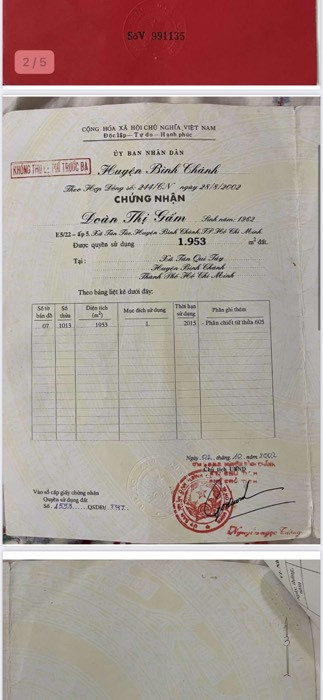 Số V 991135
2/5
CỘNG HÒA XÃ HỘI CHỦ NGHĨA VIỆT NAM
Độc lập - Tự do - Hạnh phúc
KHÔNG THU LỆ PHÍ TRƯỚC BẠ
ỦY BAN NHÂN DÂN
Huyện Bình Chánh
Theo Hợp Đồng số: 244/CN ngày 28/8/2002
CHỨNG NHẬN
Đoàn Thị Gấm Sinh năm: 1962
E5/22 - ấp 5, Xã Tân Túc, Huyện Bình Chánh, TP. Hồ Chí Minh
Được quyền sử dụng 1.953 m² đất.
Tại : Xã Tân Quý Tây
Huyện Bình Chánh
Thành Phố Hồ Chí Minh
Theo bảng liệt kê dưới đây:
Số tờ bản đồ Số thửa Diện tích (m²) Mục đích sử dụng Thời hạn sử dụng Phần ghi thêm
07 1013 1953 L 2015 - Phân chiết từ thửa 605
Ngày 02 tháng năm 2002
Chủ tịch UBND
Vào sổ cấp giấy chứng nhận
Quyền sử dụng đất
Số 4553 QSDĐ/